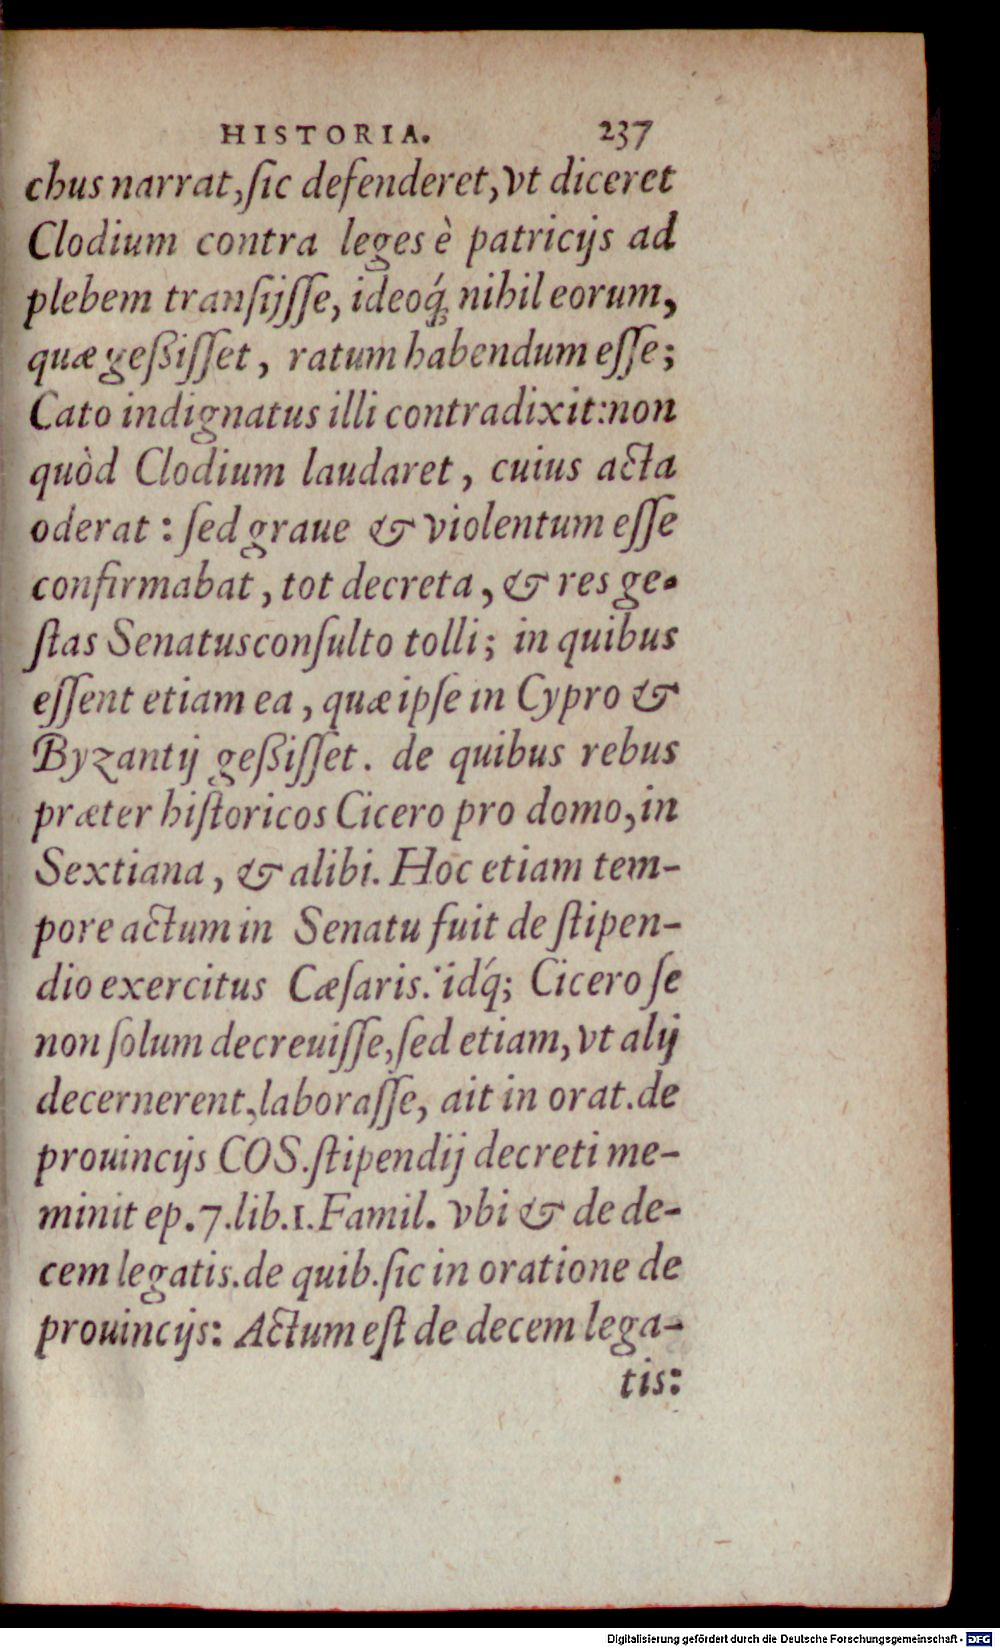 HISTORIA. 237
chus narrat, ſic defenderet, vt diceret
Clodium contra leges è patricijs ad
plebem tranſijſſe, ideoq́; nihil eorum,
quæ geßiſſet, ratum habendum eſſe;
Cato indignatus illi contradixit: non
quòd Clodium laudaret, cuius acta
oderat: ſed graue & violentum eſſe
confirmabat, tot decreta, & res ge-
ſtas Senatusconſulto tolli; in quibus
eſſent etiam ea, quæ ipſe in Cypro &
Byzantij geßiſſet. de quibus rebus
præter hiſtoricos Cicero pro domo, in
Sextiana, & alibi. Hoc etiam tem-
pore actum in Senatu fuit de ſtipen-
dio exercitus Cæſaris: idq́; Cicero ſe
non ſolum decreuiſſe, ſed etiam, vt alij
decernerent, laboraſſe, ait in orat. de
prouincijs COS. ſtipendij decreti me-
minit ep. 7. lib. 1. Famil. vbi & de de-
cem legatis. de quib. ſic in oratione de
prouincijs: Actum eſt de decem lega-
tis:
Digitalisierung gefördert durch die Deutsche Forschungsgemeinschaft - DFG